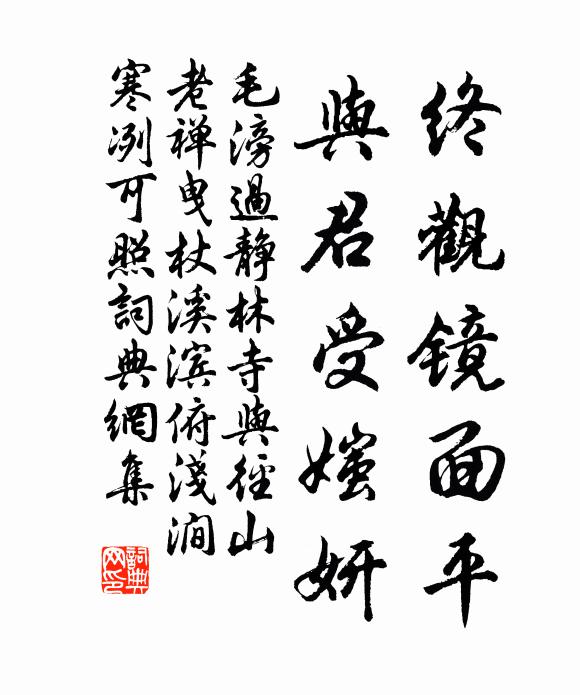 终觀镜面平
與君受媸妍
毛滂過靜林寺與徑山
老禅曳杖溪滨俯淺澗
寒冽可照詞典網集
詞典
网印